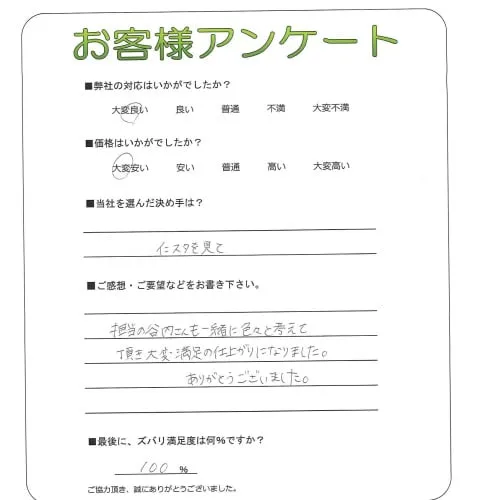 お客様アンケート
■弊社の対応はいかがでしたか？
大変良い 良い 普通 不満 大変不満
■価格はいかがでしたか？
大変安い 安い 普通 高い 大変高い
■当社を選んだ決め手は？
インスタを見て
■ご感想・ご要望などをお書き下さい。
担当の谷内さんも一緒に色々と考えて
頂き大変満足の仕上がりになりました。
ありがとうございました。
■最後に、ズバリ満足度は何％ですか？
100 ％
ご協力頂き、誠にありがとうございました。